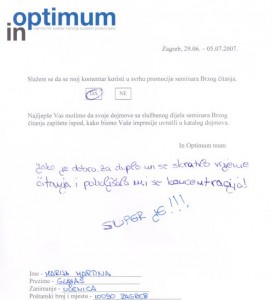 optimum
in
Zagreb, 29.06. - 05.07.2007.
Slažem se da se moj komentar koristi u svrhu promocije seminara Brzog čitanja.
DA NE
Najljepše Vas molimo da svoje dojmove sa službenog dijela seminara Brzog
čitanja zapišete ispod, kako bismo Vaše impresije uvrstili u katalog dojmova.
In Optimum team
Jako je dobro, za duplo mi se skratilo vrijeme
čitanja i poboljšala mi se koncentracija!
SUPER JE!!!
Ime - MARIJA MARTINA
Prezime -
Zanimanje - UČENICA
Poštanski broj i mjesto - 10090 ZAGREB